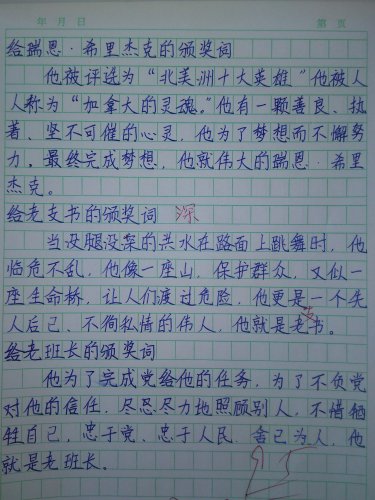 年 月 日 第 页
给瑞恩·希里杰克的颁奖词
他被评选为“北美洲十大英雄”他被人
人称为“加拿大的灵魂。”他有一颗善良、执
著、坚不可催的心灵，他为了梦想而不懈努
力。最终完成梦想，他就伟大的瑞恩·希里
杰克。
给老支书的颁奖词 深
当没腿没梁的洪水在路面上跳舞时，他
临危不乱，他像一座山，保护群众，又似一
座生命桥，让人们度过危险，他更是一个先
人后己、不徇私情的伟人，他就是老支书。
给老班长的颁奖词
他为了完成党给他的任务，为了不负党
对他的信任，尽忍尽力地照顾别人，不惜牺
牲自己，忠于党、忠于人民，舍己为人，他
就是老班长。
95